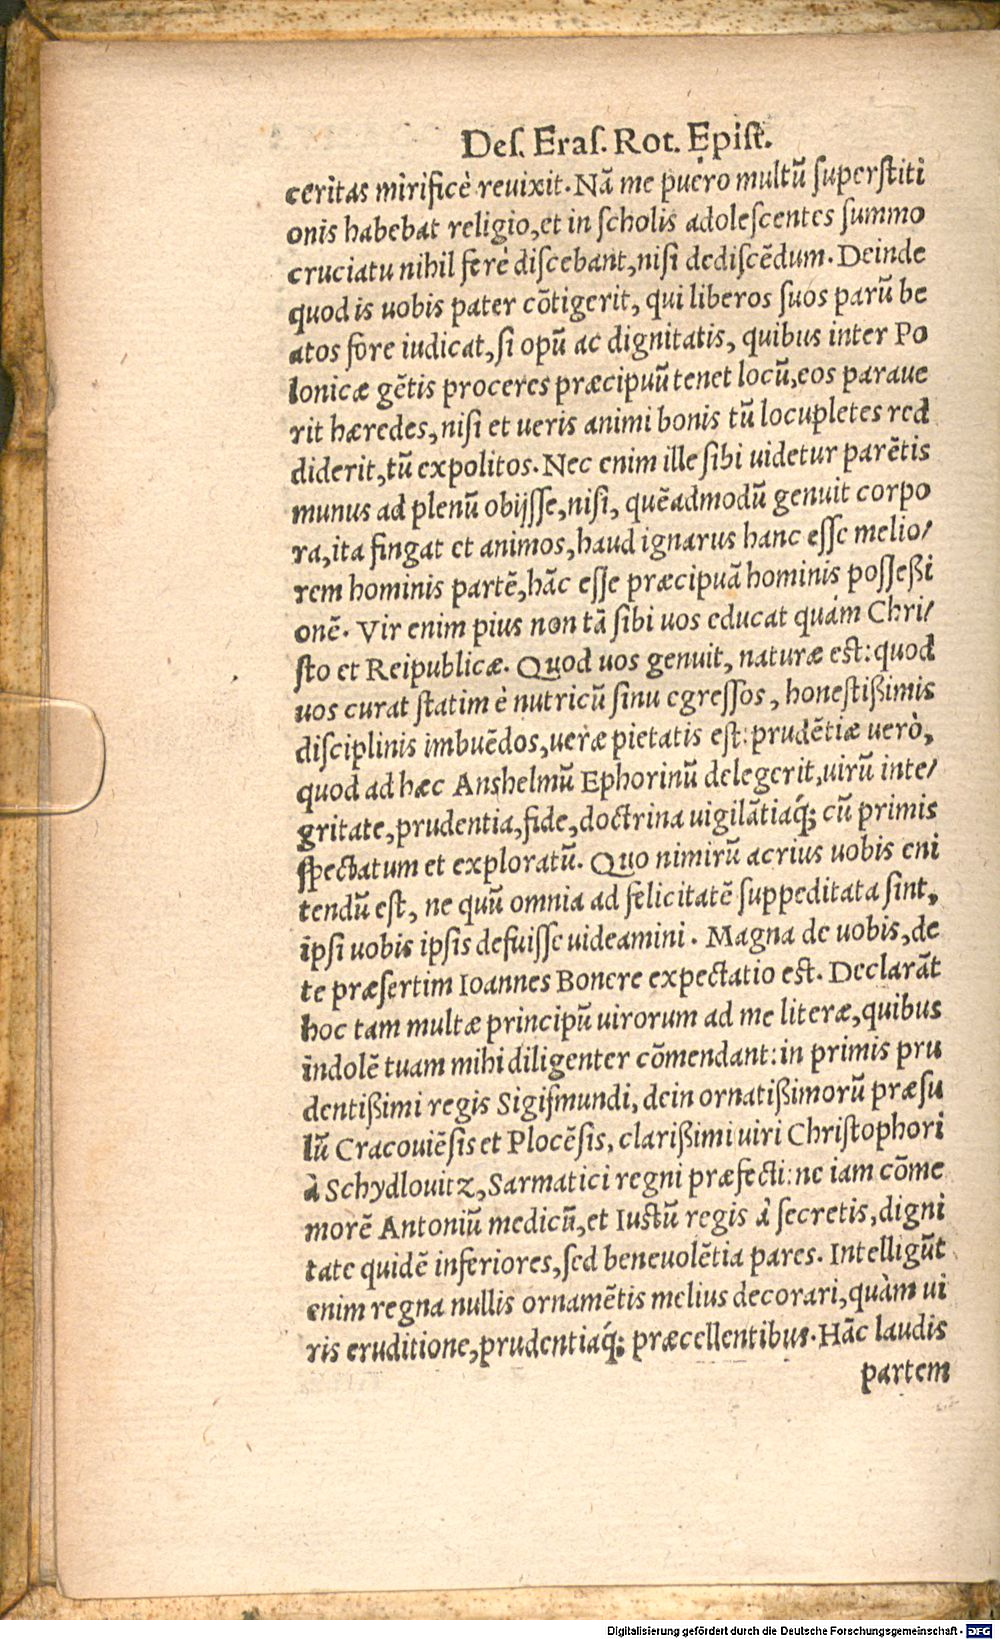 Deſ. Eraſ. Rot. Epiſt.
ceritas mirificè reuixit. Nā me puero multū ſuperſtiti
onis habebat religio, et in ſcholis adoleſcentes ſummo
cruciatu nihil ferè diſcebant, niſi dediſcēdum. Deinde
quod is uobis pater cōtigerit, qui liberos ſuos parū be
atos fore iudicat, ſi opū ac dignitatis, quibus inter Po
lonicæ gētis proceres præcipuū tenet locū, eos paraue
rit hæredes, niſi et ueris animi bonis tū locupletes red
diderit, tū expolitos. Nec enim ille ſibi uidetur parētis
munus ad plenū obijſſe, niſi, quēadmodū genuit corpo
ra, ita fingat et animos, haud ignarus hanc eſſe melio/
rem hominis partē, hāc eſſe præcipuā hominis poſſeßi
onē. Vir enim pius non tā ſibi uos educat quàm Chri/
ſto et Reipublicæ. Quod uos genuit, naturæ eſt: quod
uos curat ſtatim è nutricū ſinu egreſſos, honeſtißimis
diſciplinis imbuēdos, ueræ pietatis eſt: prudētiæ uerò,
quod ad hæc Anshelmū Ephorinū delegerit, uirū inte/
gritate, prudentia, fide, doctrina uigilātiaq́; cū primis
ſpectatum et exploratū. Quo nimirū acrius uobis eni
tendū eſt, ne quū omnia ad felicitatē ſuppeditata ſint,
ipſi uobis ipſis defuiſſe uideamini. Magna de uobis, de
te præſertim Ioannes Bonere expectatio eſt. Declarāt
hoc tam multæ principū uirorum ad me literæ, quibus
indolē tuam mihi diligenter cōmendant: in primis pru
dentißimi regis Sigiſmundi, dein ornatißimorū præſu
lū Cracouiēſis et Plocēſis, clarißimi uiri Chriſtophori
à Schydlouitz, Sarmatici regni præfecti: ne iam cōme
morē Antoniū medicū, et Iuſtū regis à ſecretis, digni
tate quidē inferiores, ſed beneuolētia pares. Intelligūt
enim regna nullis ornamētis melius decorari, quàm ui
ris eruditione, prudentiaq́; præcellentibus. Hāc laudis
partem
Digitalisierung gefördert durch die Deutsche Forschungsgemeinschaft - DFG